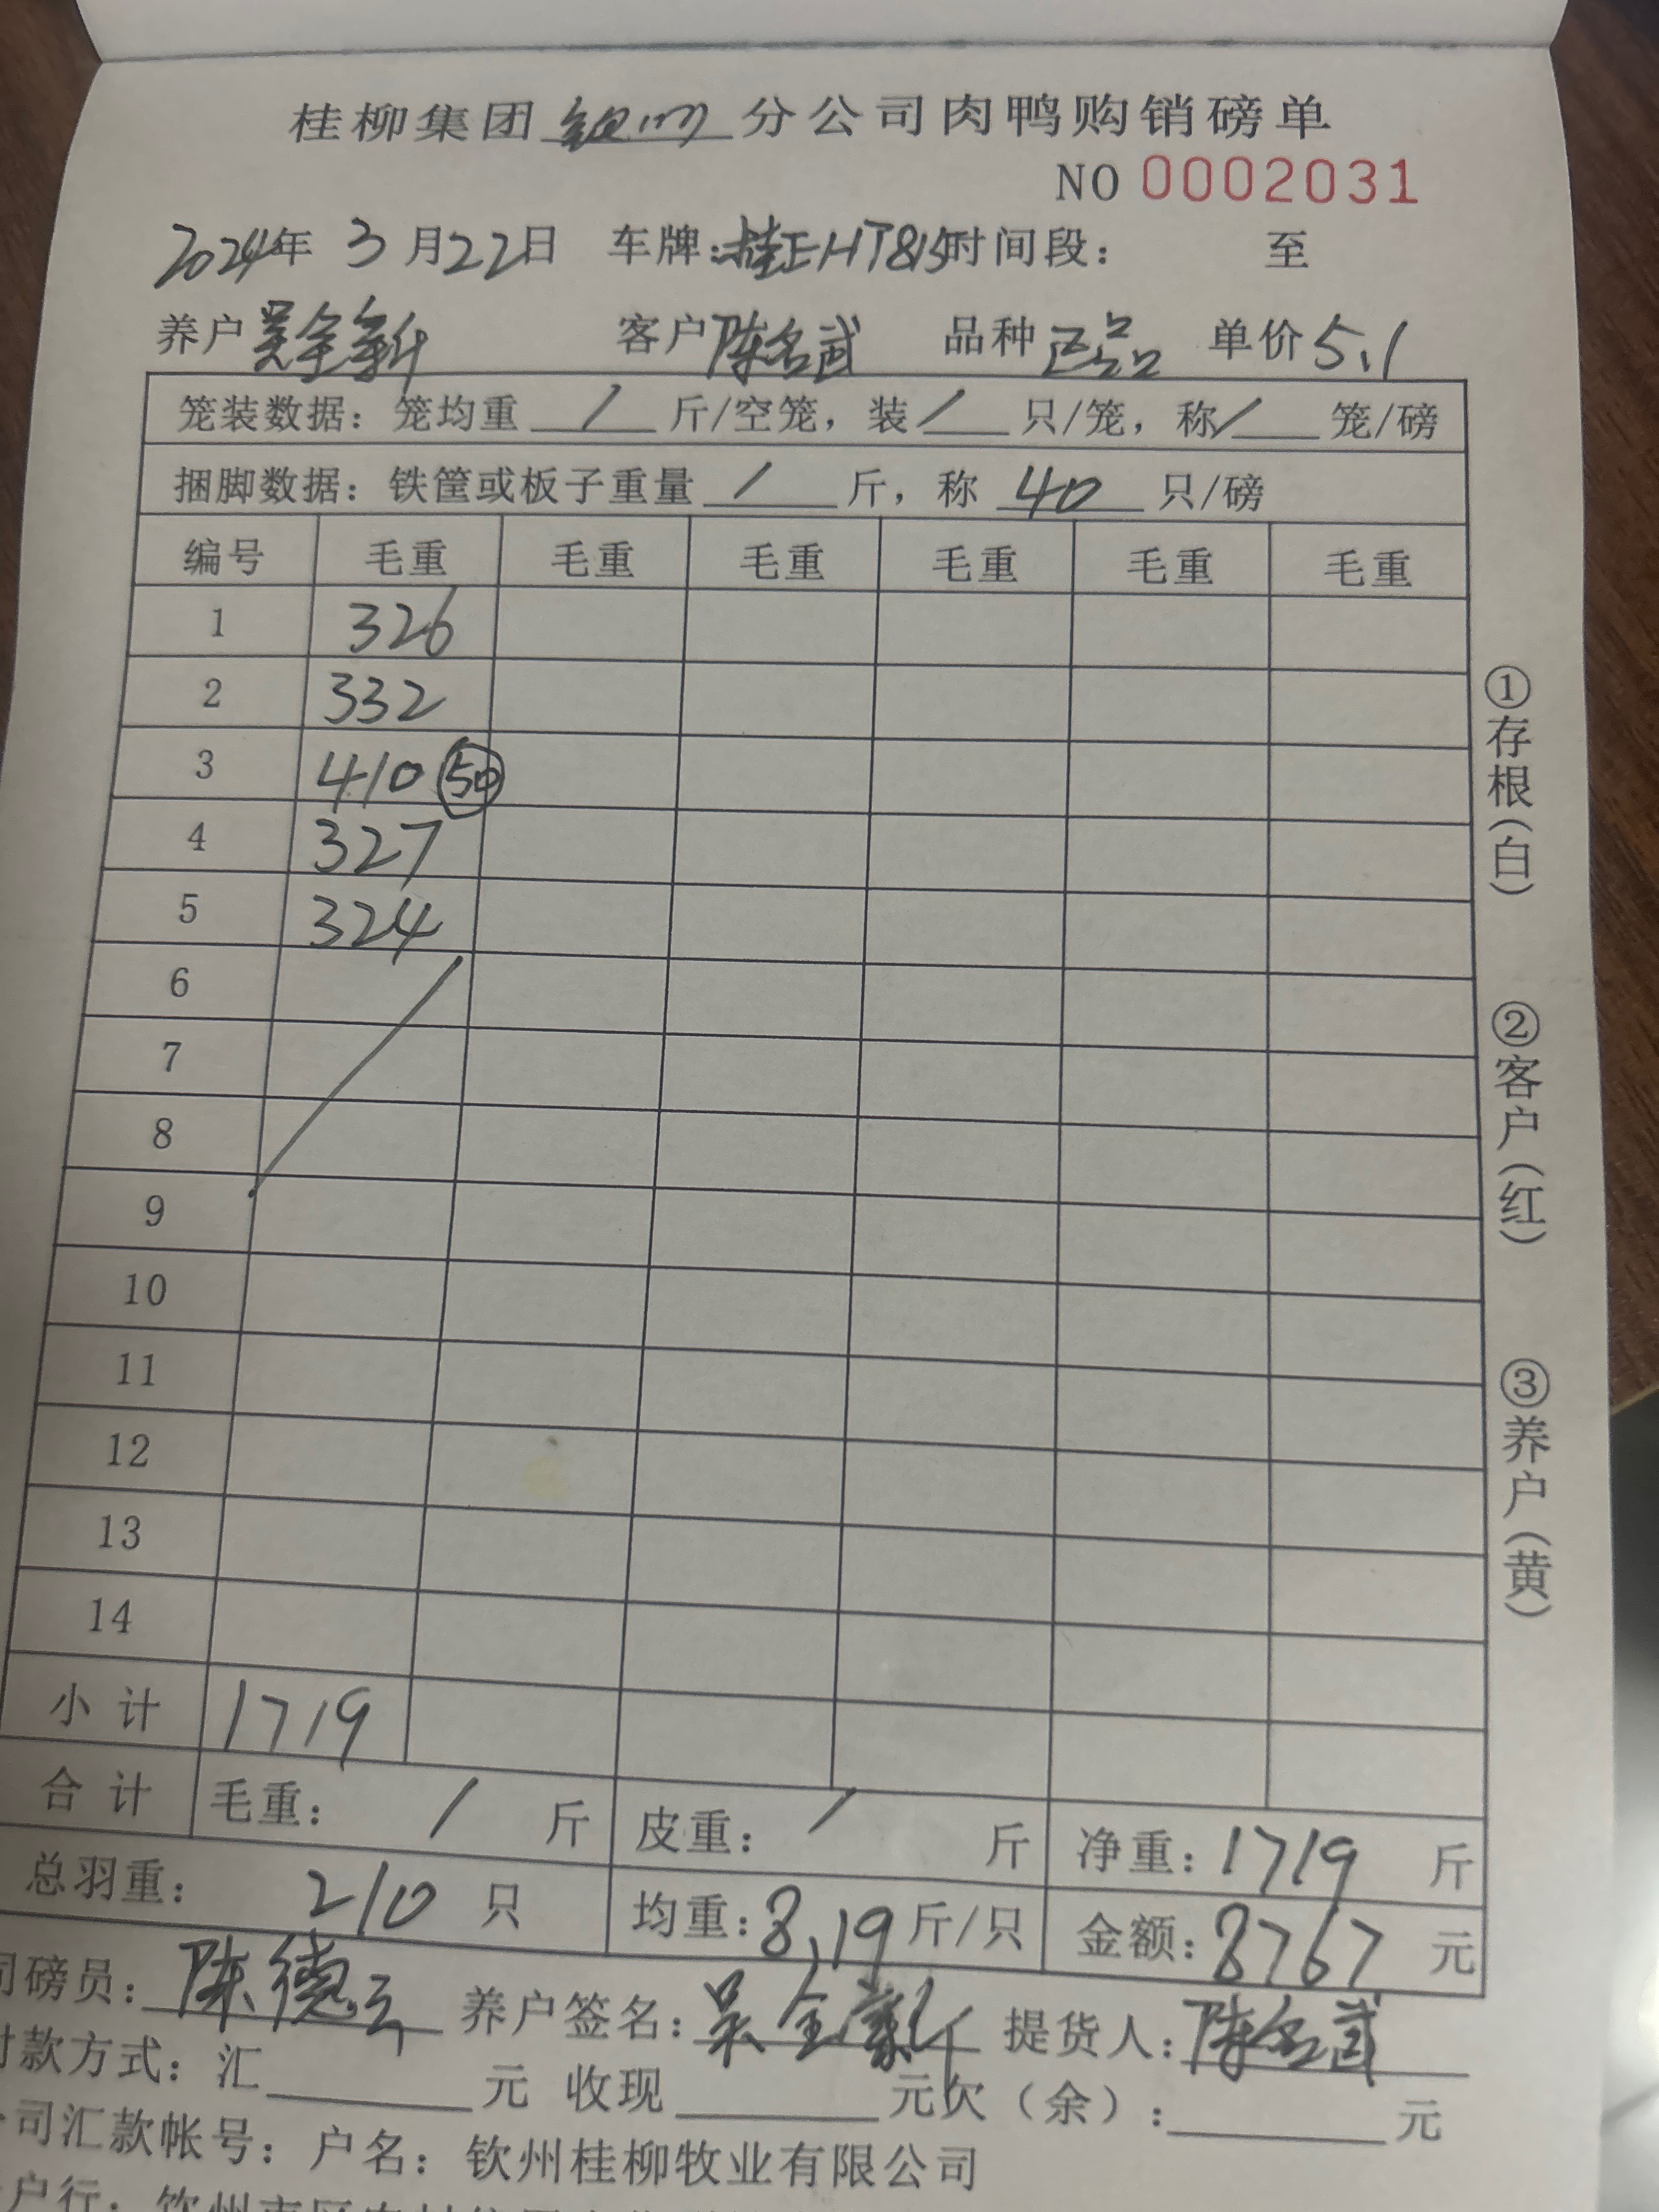 桂柳集团 钦州 分公司肉鸭购销磅单
NO 0002031
2024年 3月22日 车牌:桂EHT815 时间段: 至
养户 客户 陈名武 品种 正品 单价 5.1
笼装数据: 笼均重 / 斤/空笼, 装 / 只/笼, 称 / 笼/磅
捆脚数据: 铁筐或板子重量 / 斤, 称 40 只/磅
编号 毛重 毛重 毛重 毛重 毛重 毛重
1 326
2 332
3 410 50
4 327
5 324
6
7
8
9
10
11
12
13
14
小计 1719
合计 毛重: / 斤 皮重: / 斤 净重: 1719 斤
总羽重: 210 只 均重: 8.19 斤/只 金额: 8767 元
司磅员: 陈德云 养户签名: 吴全 提货人: 陈名武
付款方式: 汇 元 收现 元欠(余): 元
公司汇款帐号: 户名: 钦州桂柳牧业有限公司
户行:
①存根(白)
②客户(红)
③养户(黄)